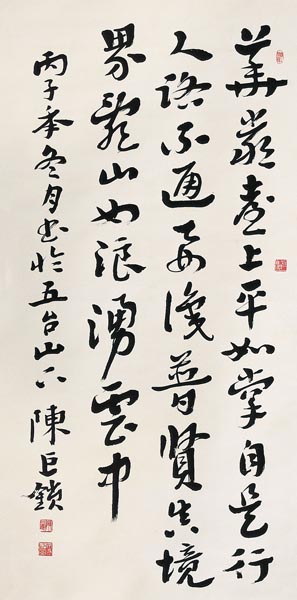 華嚴臺上平如掌自是行
人路不通要識普賢真境
界亂山如浪湧雲中
丙子年冬月書於五台山下陳巨鎖